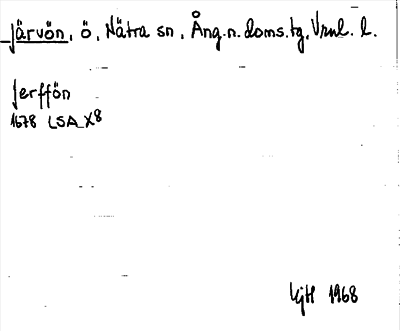 Järvön, ö, Nätra sn, Ång.n.doms.tg, Vrnl. l.
Jerffön
1678 LSA X8
KjH 1968